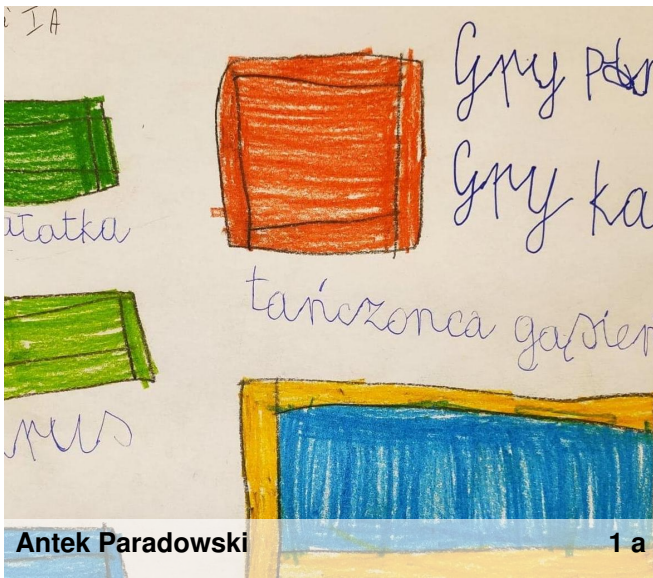 IA
Gry
Gry ka
ałatka
tańczonca gąsien
rus
Antek Paradowski 1 a